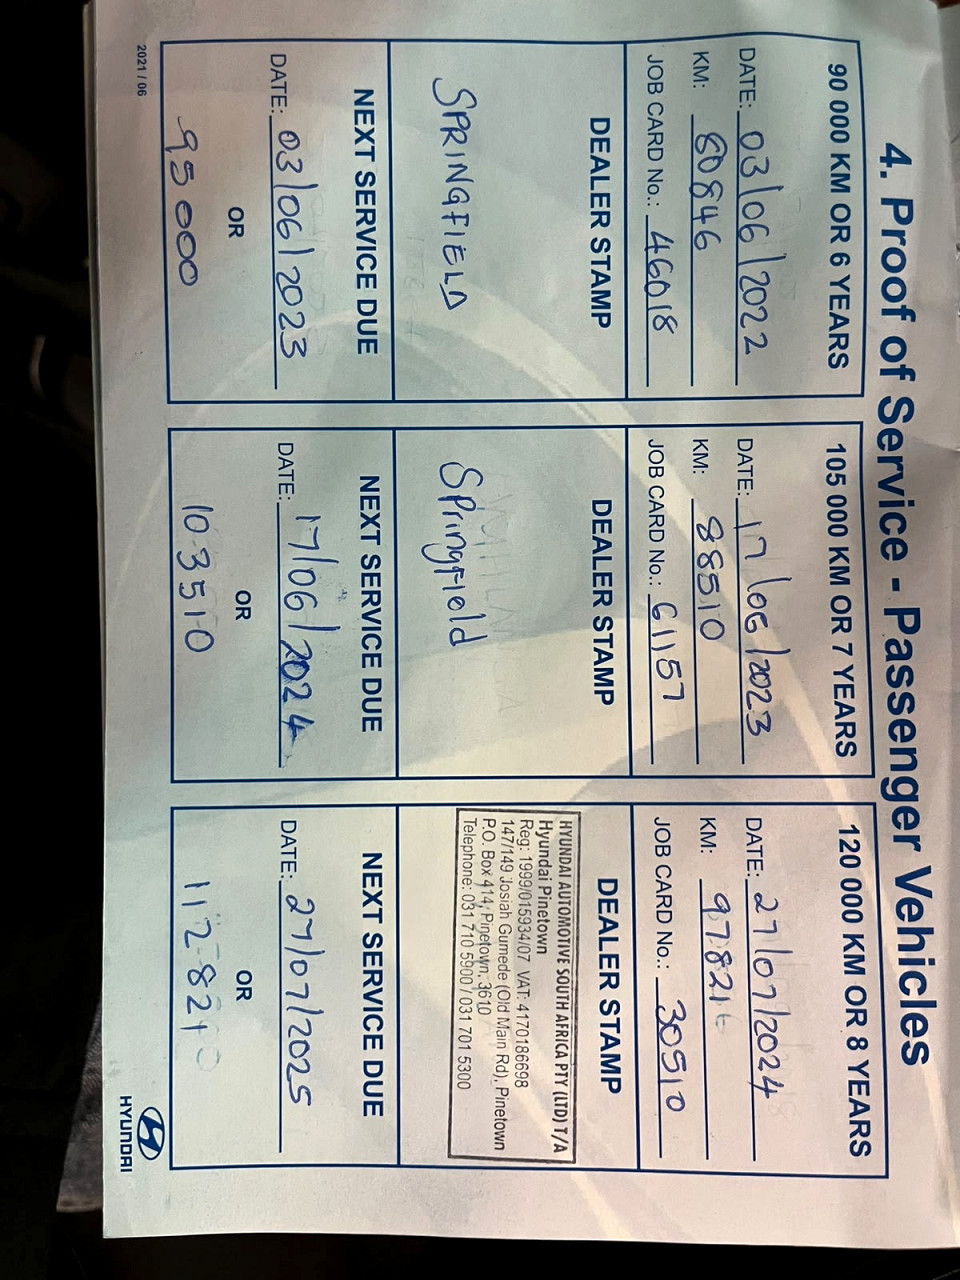 4. Proof of Service - Passenger Vehicles
90 000 KM OR 6 YEARS
DATE: 03/06/2022
KM: 80846
JOB CARD No.: 46018
DEALER STAMP
SPRINGFIELD
NEXT SERVICE DUE
DATE: 03/06/2023
OR
95000
105 000 KM OR 7 YEARS
DATE: 17/06/2023
KM: 88510
JOB CARD No.: 61157
DEALER STAMP
Springfield
NEXT SERVICE DUE
DATE: 17/06/2024
OR
103510
120 000 KM OR 8 YEARS
DATE: 27/07/2024
KM: 97821
JOB CARD No.: 30510
DEALER STAMP
HYUNDAI AUTOMOTIVE SOUTH AFRICA PTY (LTD) T/A
Hyundai Pinetown
Reg: 1999/015934/07 VAT: 4170186698
147/149 Josiah Gumede (Old Main Rd), Pinetown
P.O. Box 414, Pinetown, 3610
Telephone: 031 710 5900 / 031 701 5300
NEXT SERVICE DUE
DATE: 27/07/2025
OR
112821
2021 / 06
HYUNDAI